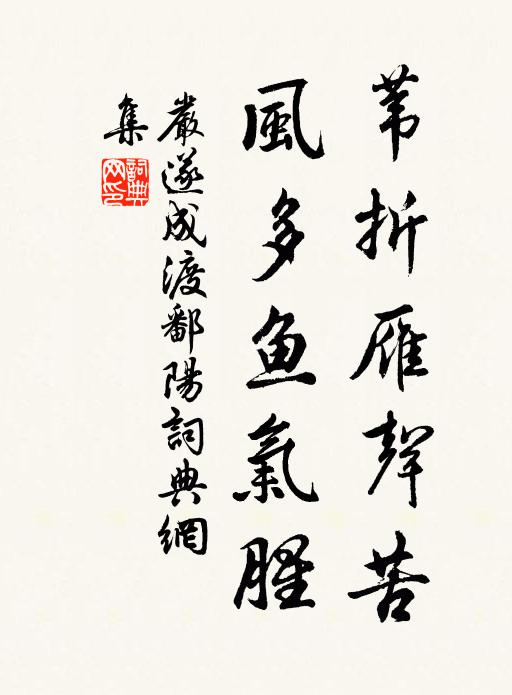 苇折雁聲苦
風多鱼氣腥
嚴遂成渡鄱陽詞典網
集
詞典網印